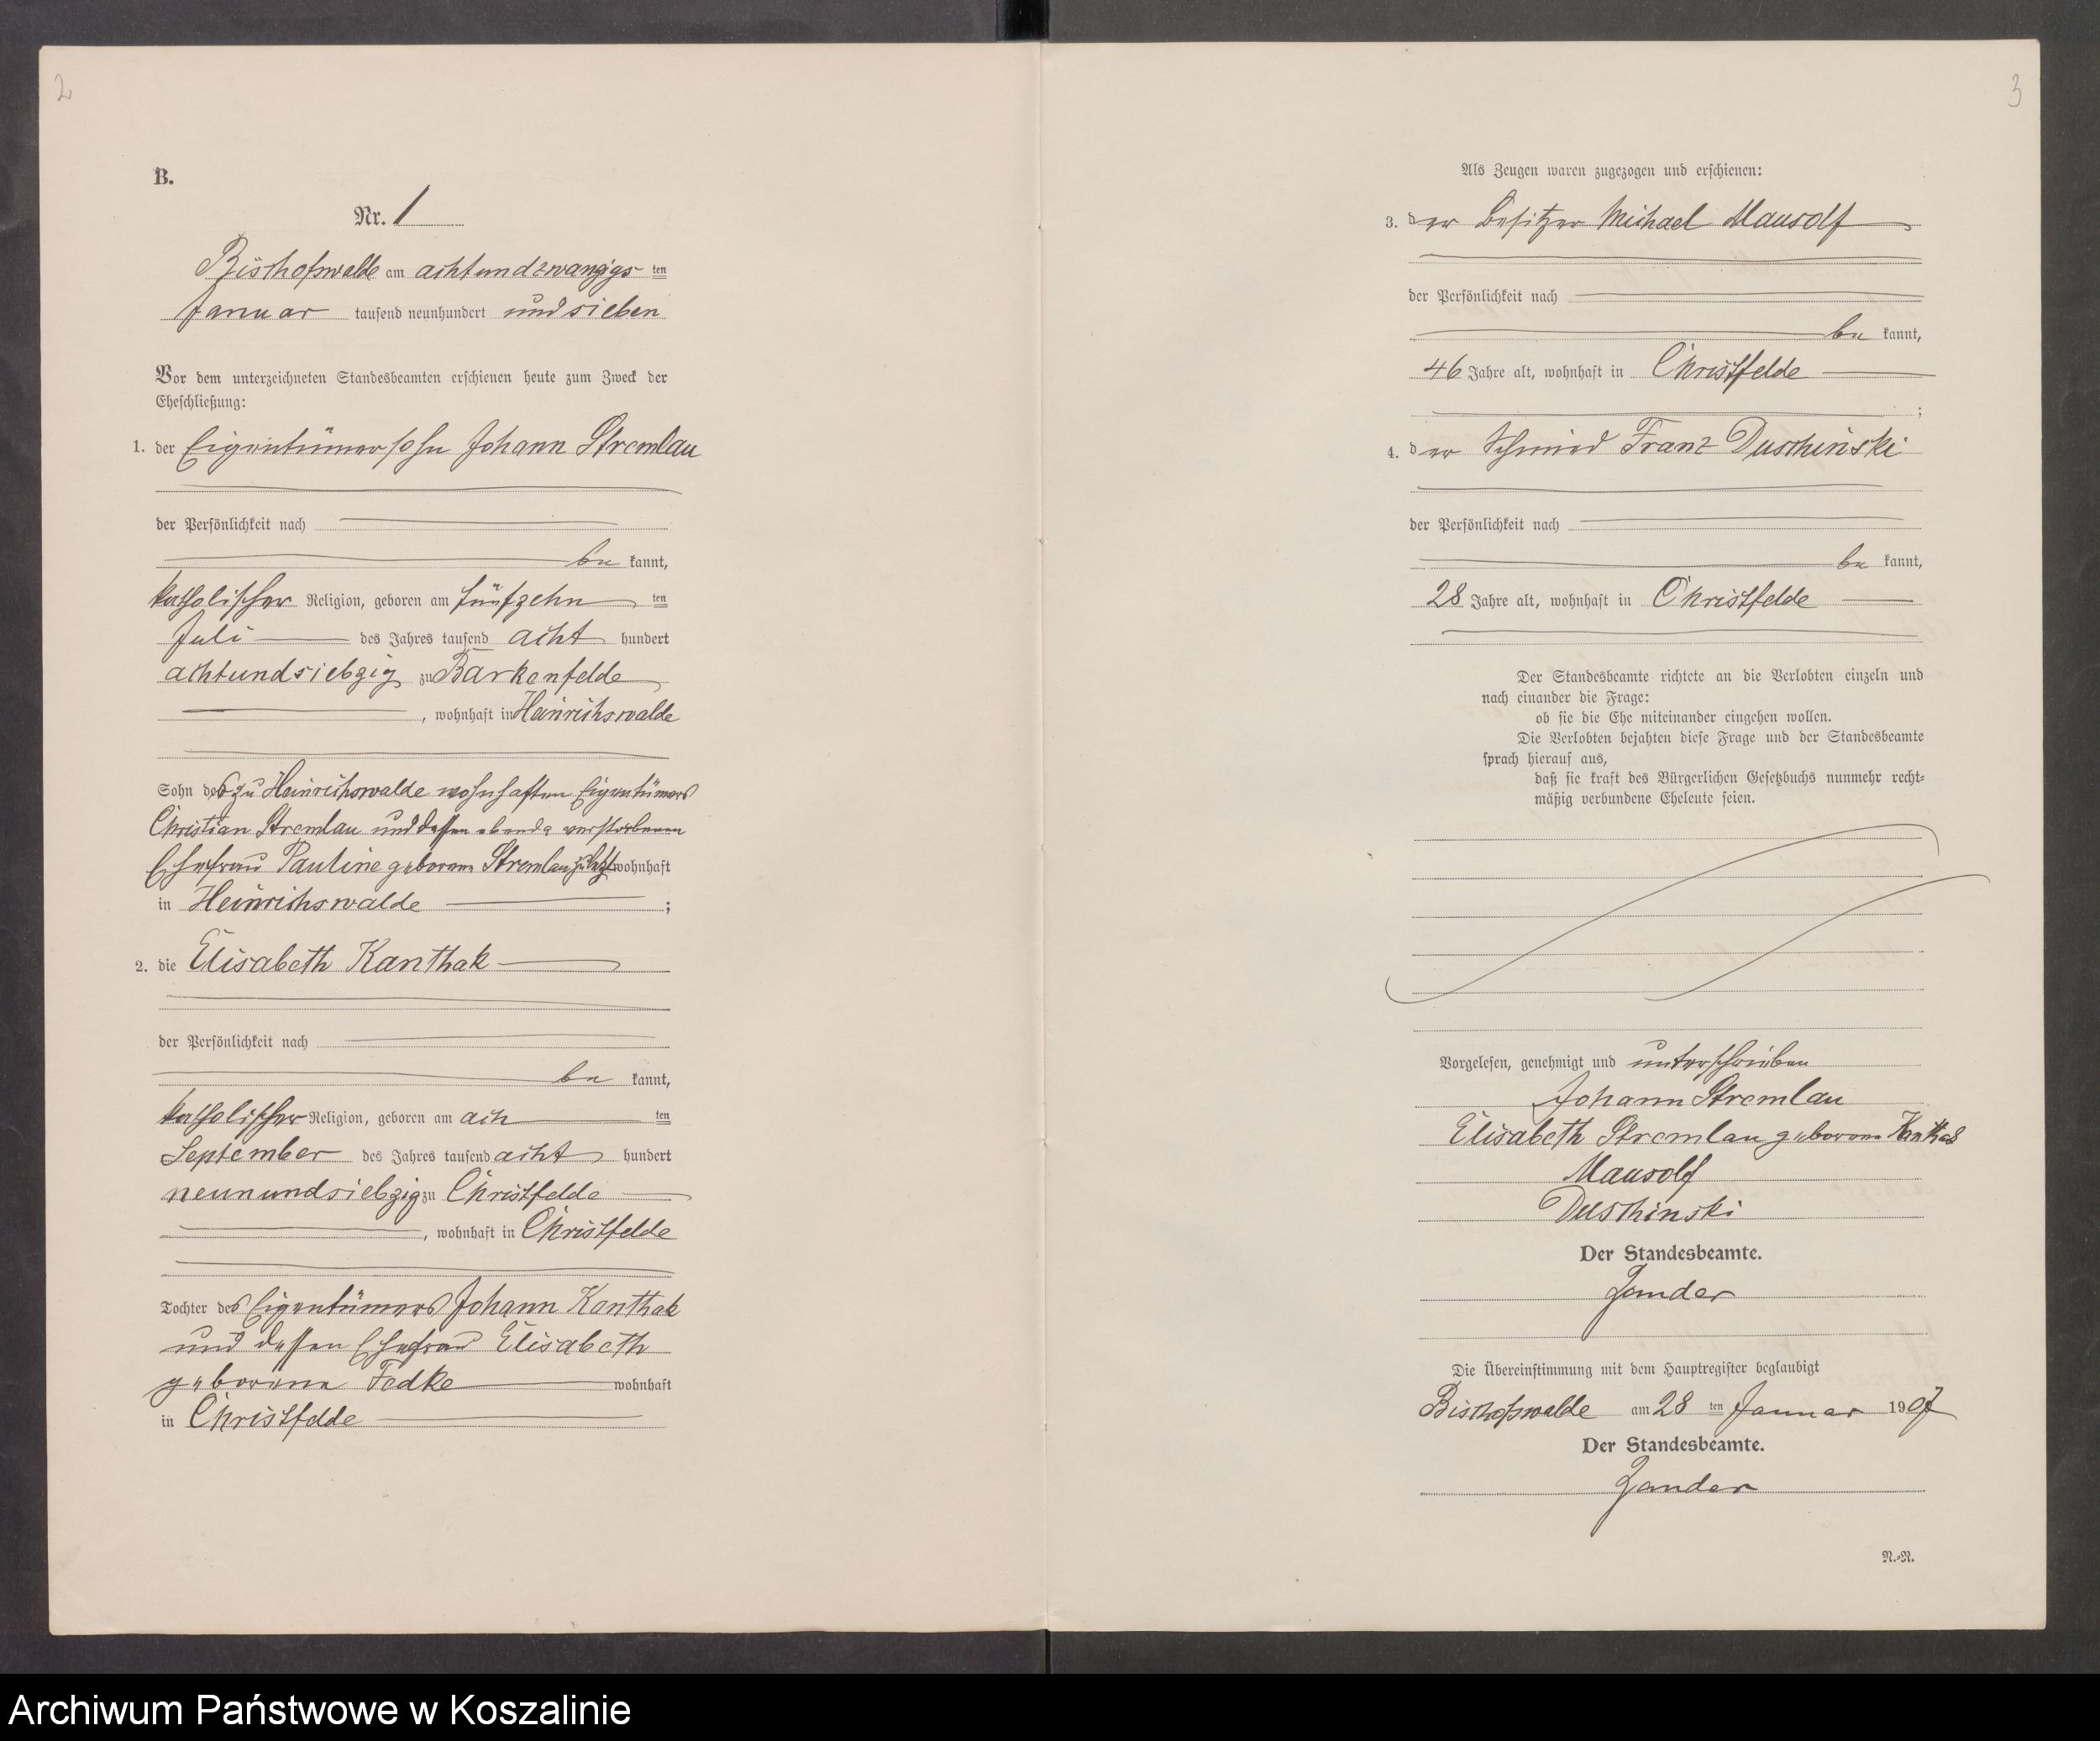 2
B.
Nr. 1
Bischofswalde am achtundzwanzigs ten
Januar tausend neunhundert und sieben
Vor dem unterzeichneten Standesbeamten erschienen heute zum Zweck der
Eheschließung:
1. der Eigentümersohn Johann Stremlau
der Persönlichkeit nach
be kannt,
katholischer Religion, geboren am fünfzehn ten
Juli des Jahres tausend acht hundert
achtundsiebzig zu Barkenfelde
, wohnhaft in Heinrichswalde
Sohn des zu Heinrichswalde wohnhaften Eigentümers
Christian Stremlau und dessen ebenda verstorbenen
Ehefrau Pauline geborene Stremlau zuletzt wohnhaft
in Heinrichswalde ;
2. die Elisabeth Kanthak
der Persönlichkeit nach
be kannt,
katholischer Religion, geboren am ach ten
September des Jahres tausend acht hundert
neunundsiebzig zu Christfelde
, wohnhaft in Christfelde
Tochter des Eigentümers Johann Kanthak
und dessen Ehefrau Elisabeth
geborene Fedke wohnhaft
in Christfelde
3
Als Zeugen waren zugezogen und erschienen:
3. der Besitzer Michael Mausolf
der Persönlichkeit nach
be kannt,
46 Jahre alt, wohnhaft in Christfelde
;
4. der Schmied Franz Duschinski
der Persönlichkeit nach
be kannt,
28 Jahre alt, wohnhaft in Christfelde
Der Standesbeamte richtete an die Verlobten einzeln und
nach einander die Frage:
ob sie die Ehe miteinander eingehen wollen.
Die Verlobten bejahten diese Frage und der Standesbeamte
sprach hierauf aus,
daß sie kraft des Bürgerlichen Gesetzbuchs nunmehr recht=
mäßig verbundene Eheleute seien.
Vorgelesen, genehmigt und unterschrieben
Johann Stremlau
Elisabeth Stremlau geborene Kanthak
Mausolf
Duschinski
Der Standesbeamte.
Zander
Die Übereinstimmung mit dem Hauptregister beglaubigt
Bischofswalde am 28 ten Januar 1907
Der Standesbeamte.
Zander
N.=N.
Archiwum Państwowe w Koszalinie